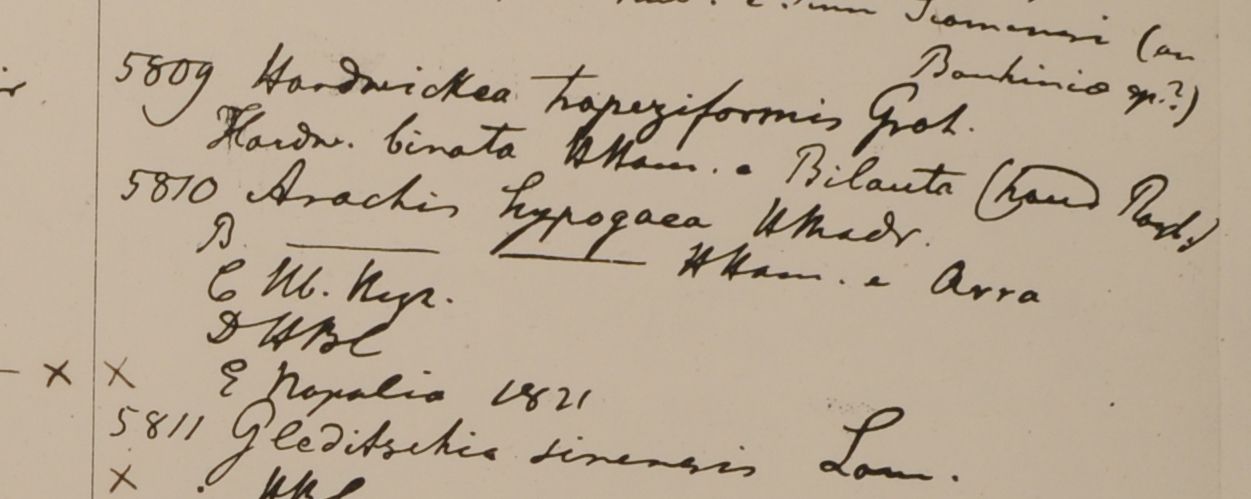 (an
Bauhiniæ sp.?)
5809 Hardwickea trapeziformis Grah.
Hardw. binata HHam. e Bilauta (haud Roxb.)
5810 Arachis hypogaea HMadr.
B. ——— ——— HHam. e Arra
C Nb. Negr.
D HBC
× × E Napalia 1821
5811 Gleditschia sinensis Lam.
× HBC